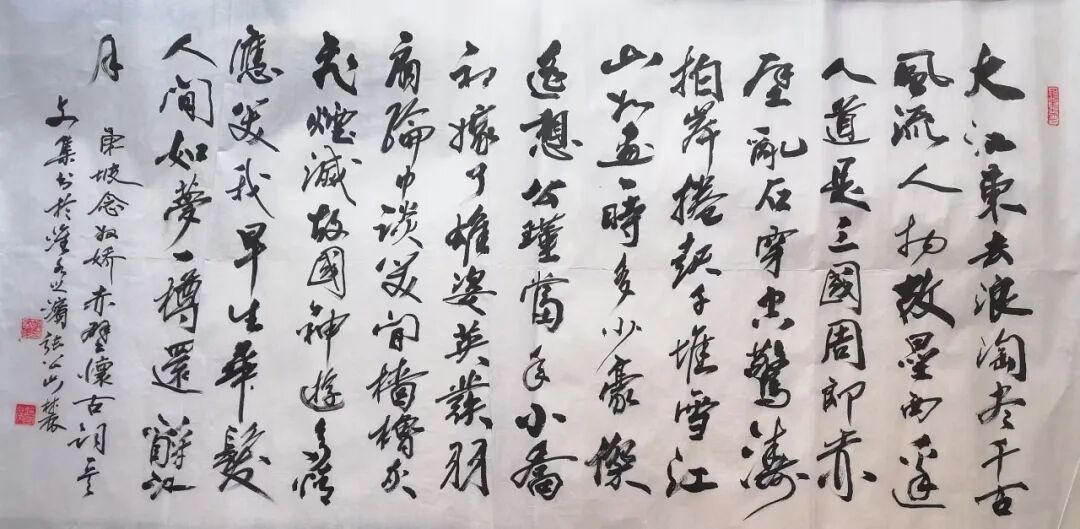 大江東去浪淘盡千古
風流人物故壘西邊
人道是三國周郎赤
壁亂石穿空驚濤
拍岸捲起千堆雪江
山如畫一時多少豪傑
遙想公瑾當年小喬
初嫁了雄姿英發羽
扇綸巾談笑間檣櫓灰
飛煙滅故國神遊多情
應笑我早生華髮
人間如夢一樽還酹江
月
東坡念奴嬌赤壁懷古詞
集書於張公山